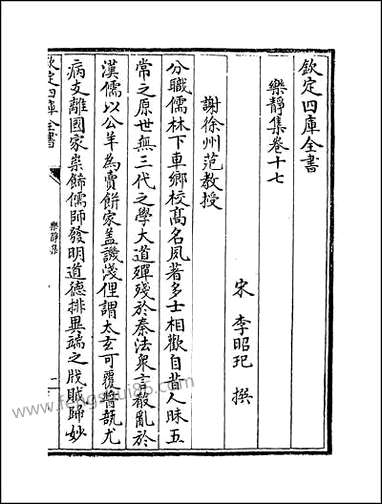 欽定四庫全書
樂靜集卷十七
宋 李昭玘 撰
謝徐州范教授
分職儒林下車鄉校髙名夙著多士相歡自昔人昧五
常之原世無三代之學大道殫殘於秦法衆言殽亂於
漢儒以公羊為賣餅家盖譏淺俚謂太玄可覆醬瓿尤
病支離國家崇飾儒師發明道德排異端之戕賊歸妙
欽定四庫全書
樂靜集
一
www.fengshui86.com